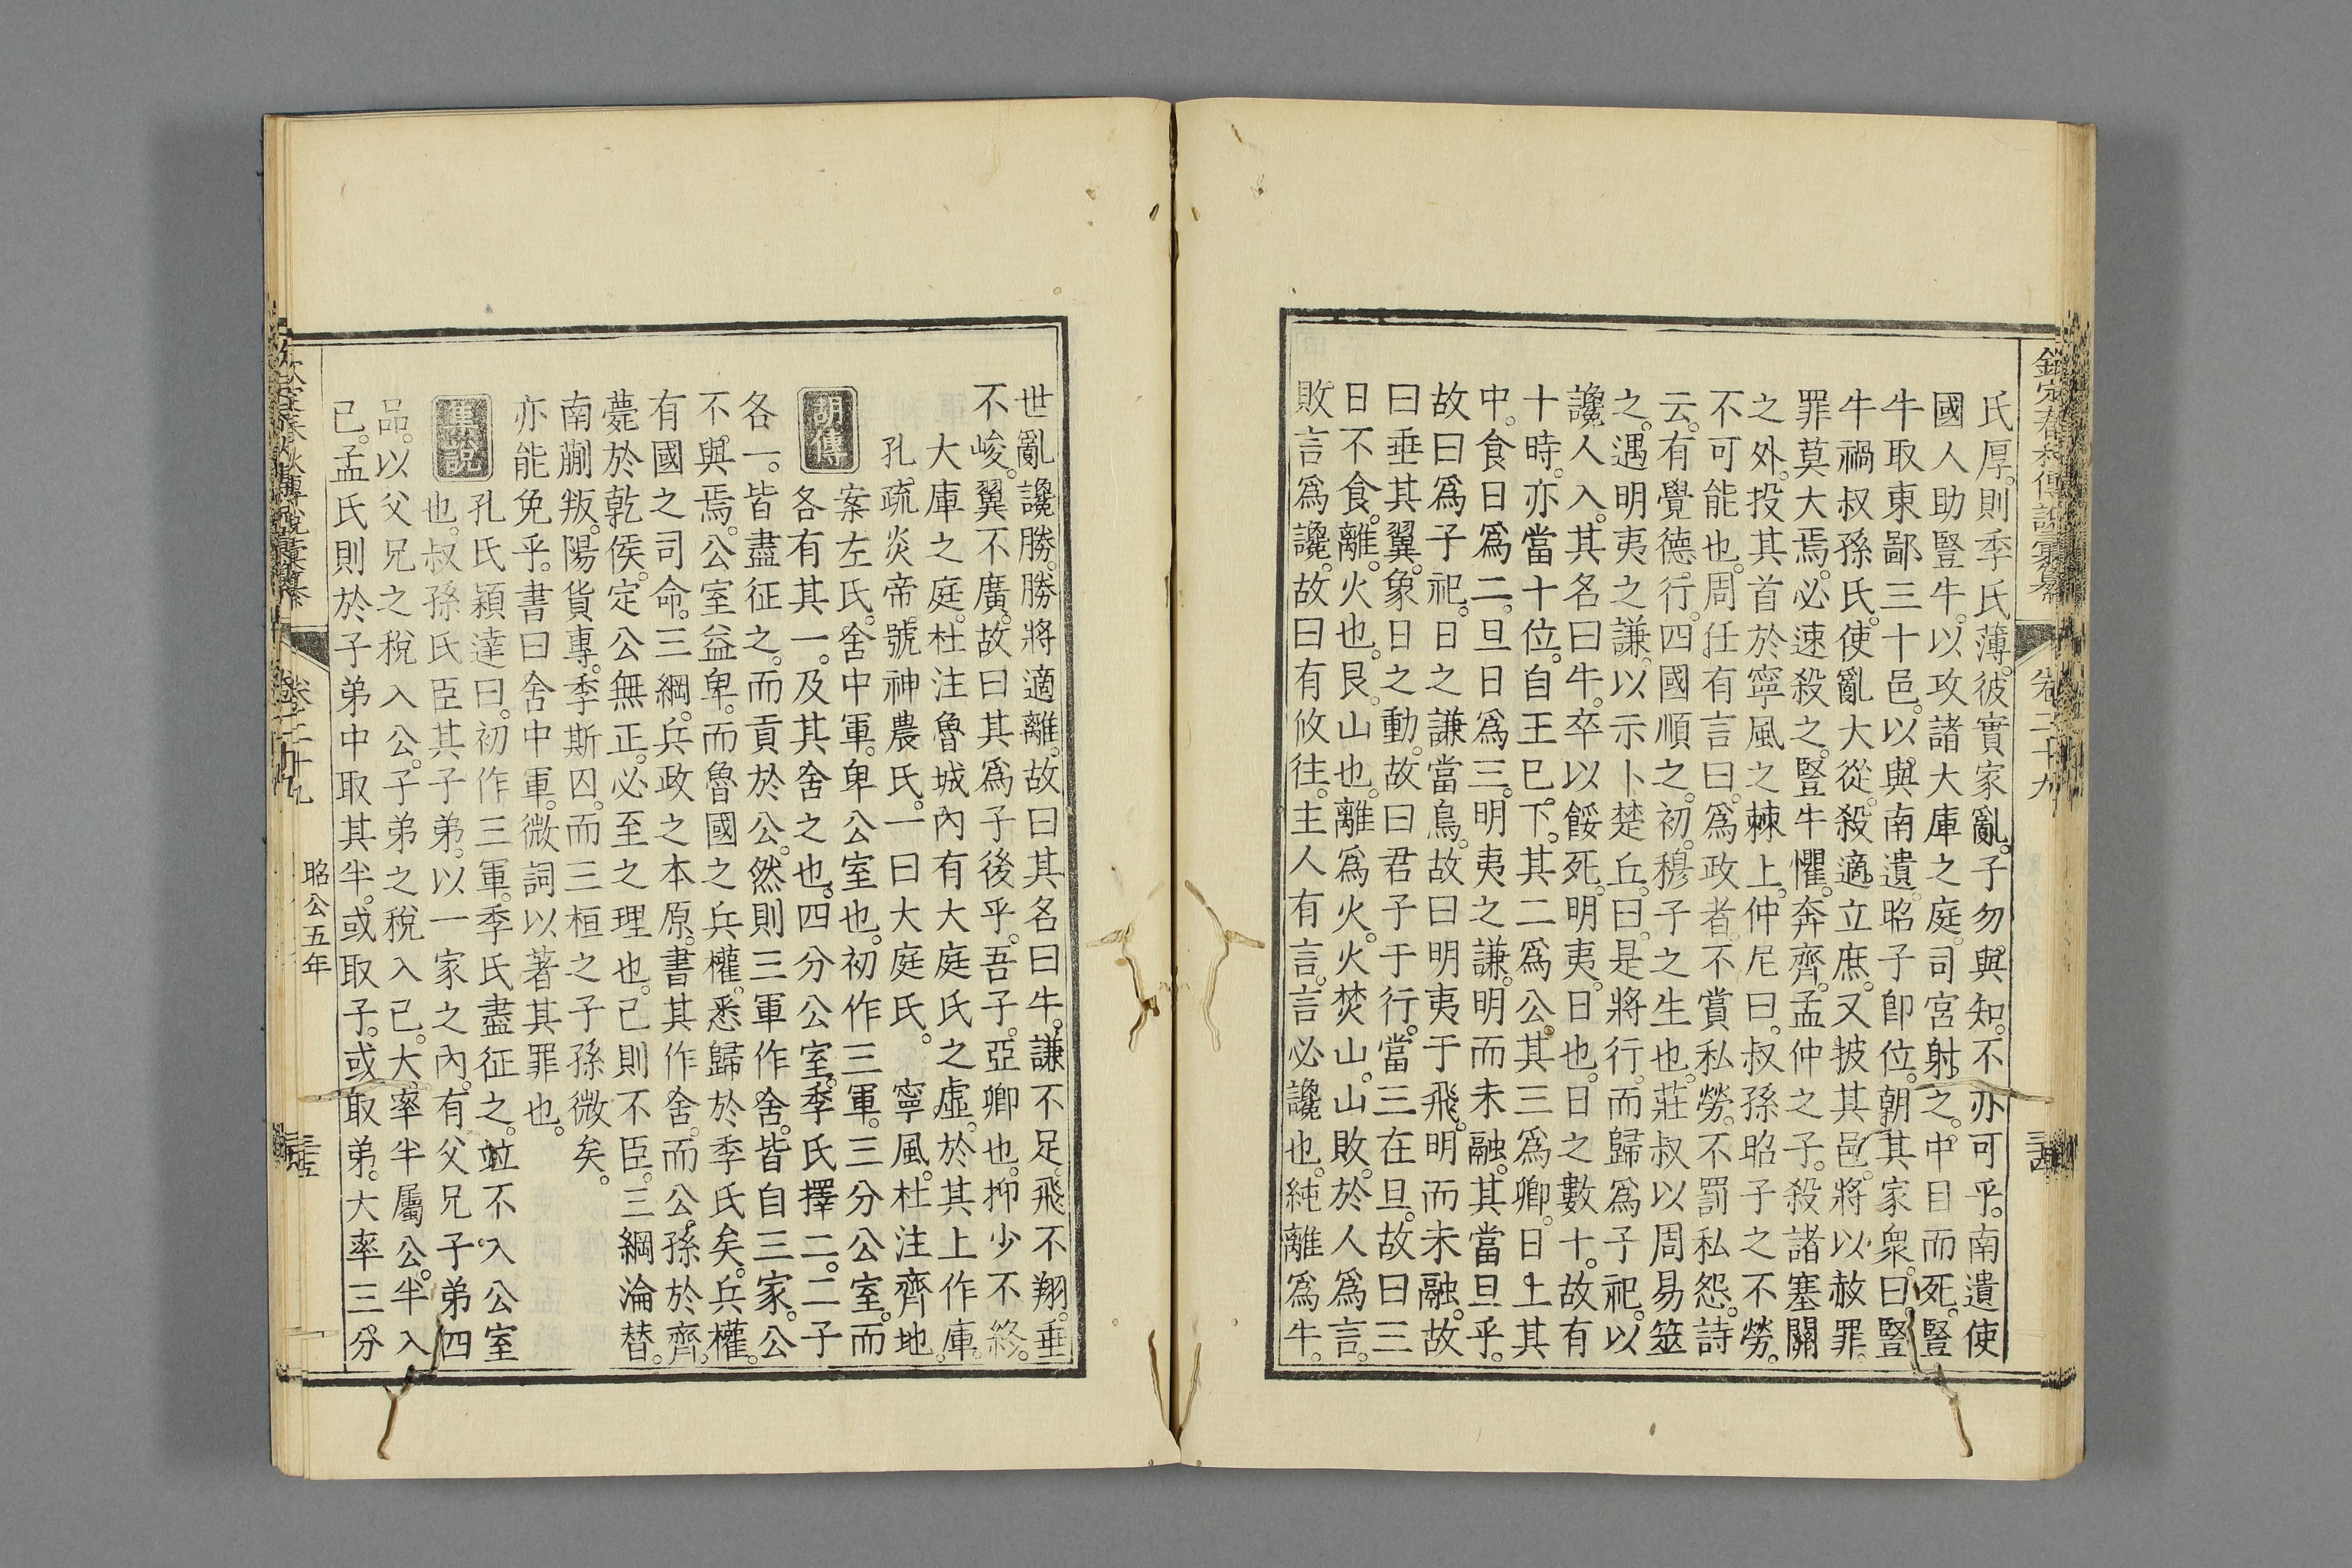 欽定春秋傳說彙纂
卷二十九
氏厚。則季氏薄。彼實家亂。子勿與知。不亦可乎。南遺使
國人助豎牛。以攻諸大庫之庭。司宮射之。中目而死。豎
牛取東鄙三十邑。以與南遺。昭子卽位。朝其家衆。曰。豎
牛禍叔孫氏。使亂大從。殺適立庶。又披其邑。將以赦罪。
罪莫大焉。必速殺之。豎牛懼。奔齊。孟仲之子。殺諸塞關
之外。投其首於寧風之棘上。仲尼曰。叔孫昭子之不勞。
不可能也。周任有言曰。爲政者。不賞私勞。不罰私怨。詩
云。有覺德行。四國順之。初。穆子之生也。莊叔以周易筮
之。遇明夷之謙。以示卜楚丘。曰。是將行。而歸爲子祀。以
讒人入。其名曰牛。卒以餒死。明夷。日也。日之數十。故有
十時。亦當十位。自王巳下。其二爲公。其三爲卿。日上其
中。食日爲二。旦日爲三。明夷之謙。明而未融。其當旦乎。
故曰爲子祀。日之謙當鳥。故曰明夷于飛。明而未融。故
曰垂其翼。象日之動。故曰君子于行。當三在旦。故曰三
日不食。離。火也。艮。山也。離爲火。火焚山。山敗。於人爲言。
敗言爲讒。故曰有攸往。主人有言。言必讒也。純離爲牛。
世亂讒勝。勝將適離。故曰其名曰牛。謙不足。飛不翔。垂
不峻。翼不廣。故曰其爲子後乎。吾子。亞卿也。抑少不終。
大庫之庭。杜注魯城內有大庭氏之虛。於其上作庫。
孔疏炎帝。號神農氏。一曰大庭氏。 寧風。杜注齊地。
胡傳
案左氏。舍中軍。卑公室也。初作三軍。三分公室。而
各有其一。及其舍之也。四分公室。季氏擇二。二子
各一。皆盡征之。而貢於公。然則三軍作舍。皆自三家。公
不與焉。公室益卑。而魯國之兵權。悉歸於季氏矣。兵權。
有國之司命。三綱。兵政之本原。書其作舍。而公孫於齊。
薨於乾侯。定公無正。必至之理也。己則不臣。三綱淪替。
南蒯叛。陽貨專。季斯囚。而三桓之子孫微矣。
亦能免乎。書曰舍中軍。微詞以著其罪也。
集說
孔氏穎達曰。初作三軍。季氏盡征之。竝不入公室
也。叔孫氏臣其子弟。以一家之內。有父兄子弟四
品。以父兄之稅入公。子弟之稅入己。大率半屬公。半入
已。孟氏則於子弟中取其半。或取子。或取弟。大率三分
卷二十九
昭公五年